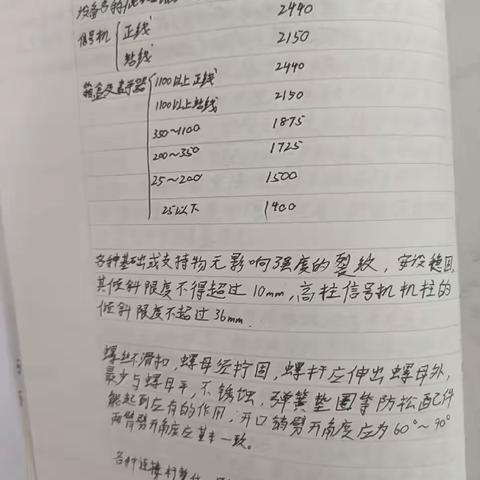 设备名称 2440
信号机 正线 2150
站线
箱盒及表示器 1100以上正线 2440
1100以上站线 2150
350~1100 1875
200~350 1725
25~200 1500
25以下 1400
各种基础或支持物无影响强度的裂纹,安设稳固,
其倾斜限度不得超过10mm,高柱信号机机柱的
倾斜限度不超过36mm.
螺丝不滑扣,螺母须拧固,螺杆应伸出螺母外,
最少与螺母平,不锈蚀,弹簧垫圈等防松配件
能起到应有的作用;开口销劈开角度应为60°~90°
两臂劈开角度应基本一致。
各种连接杆